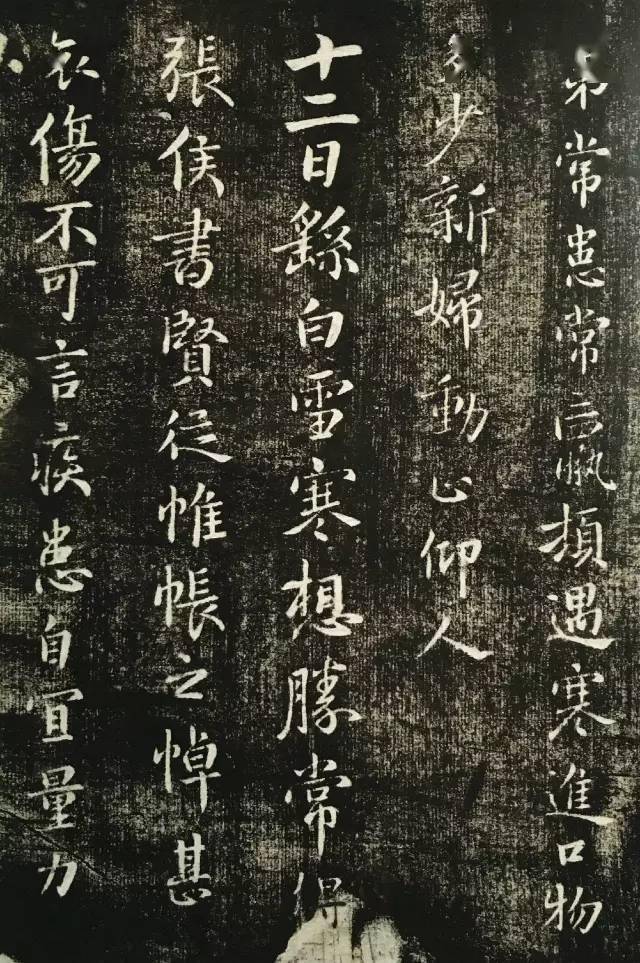 弟常患常羸頓遇寒進口物
少新婦動止仰人
十二日繇白雪寒想勝常得
張侯書賢從帷帳之悼甚
哀傷不可言疾患自宜量力